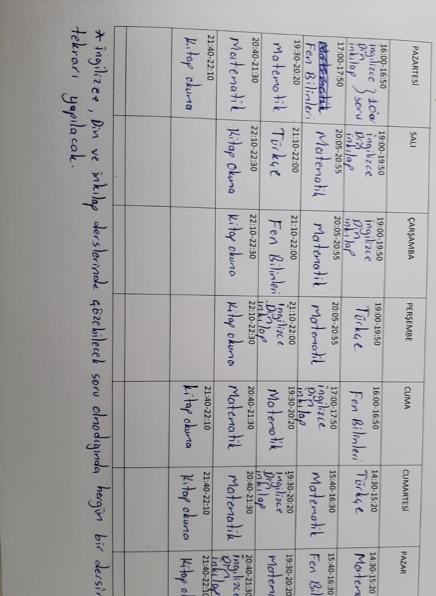 PAZARTESİ
16:00-16:50
ingilizce
Din
inkılap
soru
17:00-17:50
Fen Bilimleri
19:30-20:20
Matematik
20:40-21:30
Matematik
21:40-22:10
Kitap okuma
SALI
19:00-19:50
ingilizce
Din
inkılap
20:05-20:55
Matematik
21:10-22:00
Türkçe
22:10-22:30
Kitap Okuma
ÇARŞAMBA
19:00-19:50
ingilizce
Din
inkılap
20:05-20:55
Matematik
21:10-22:00
Fen Bilimleri
22:10-22:30
Kitap okuma
PERŞEMBE
19:00-19:50
Türkçe
20:05-20:55
Matematik
21:10-22:00
ingilizce
Din
inkılap
22:10-22:30
Kitap okuma
CUMA
16:00-16:50
Fen Bilimleri
17:00-17:50
ingilizce
Din
inkılap
19:30-20:20
Matematik
20:40-21:30
Matematik
21:40-22:10
Kitap okuma
CUMARTESİ
14:30-15:20
Türkçe
15:40-16:30
Matematik
19:30-20:20
ingilizce
Din
inkılap
20:40-21:30
Matematik
21:40-22:10
Kitap okuma
PAZAR
14:30-15:20
Matem
15:40-16:30
Fen Bi
19:30-20:20
Matem
20:40-21:30
ingilizce
Din
inkılap
21:40-22:1
Kitap o
* ingilizce, Din ve inkılap derslerinde çözebilecek soru olmadığında hergün bir dersin
tekrarı yapılacak.